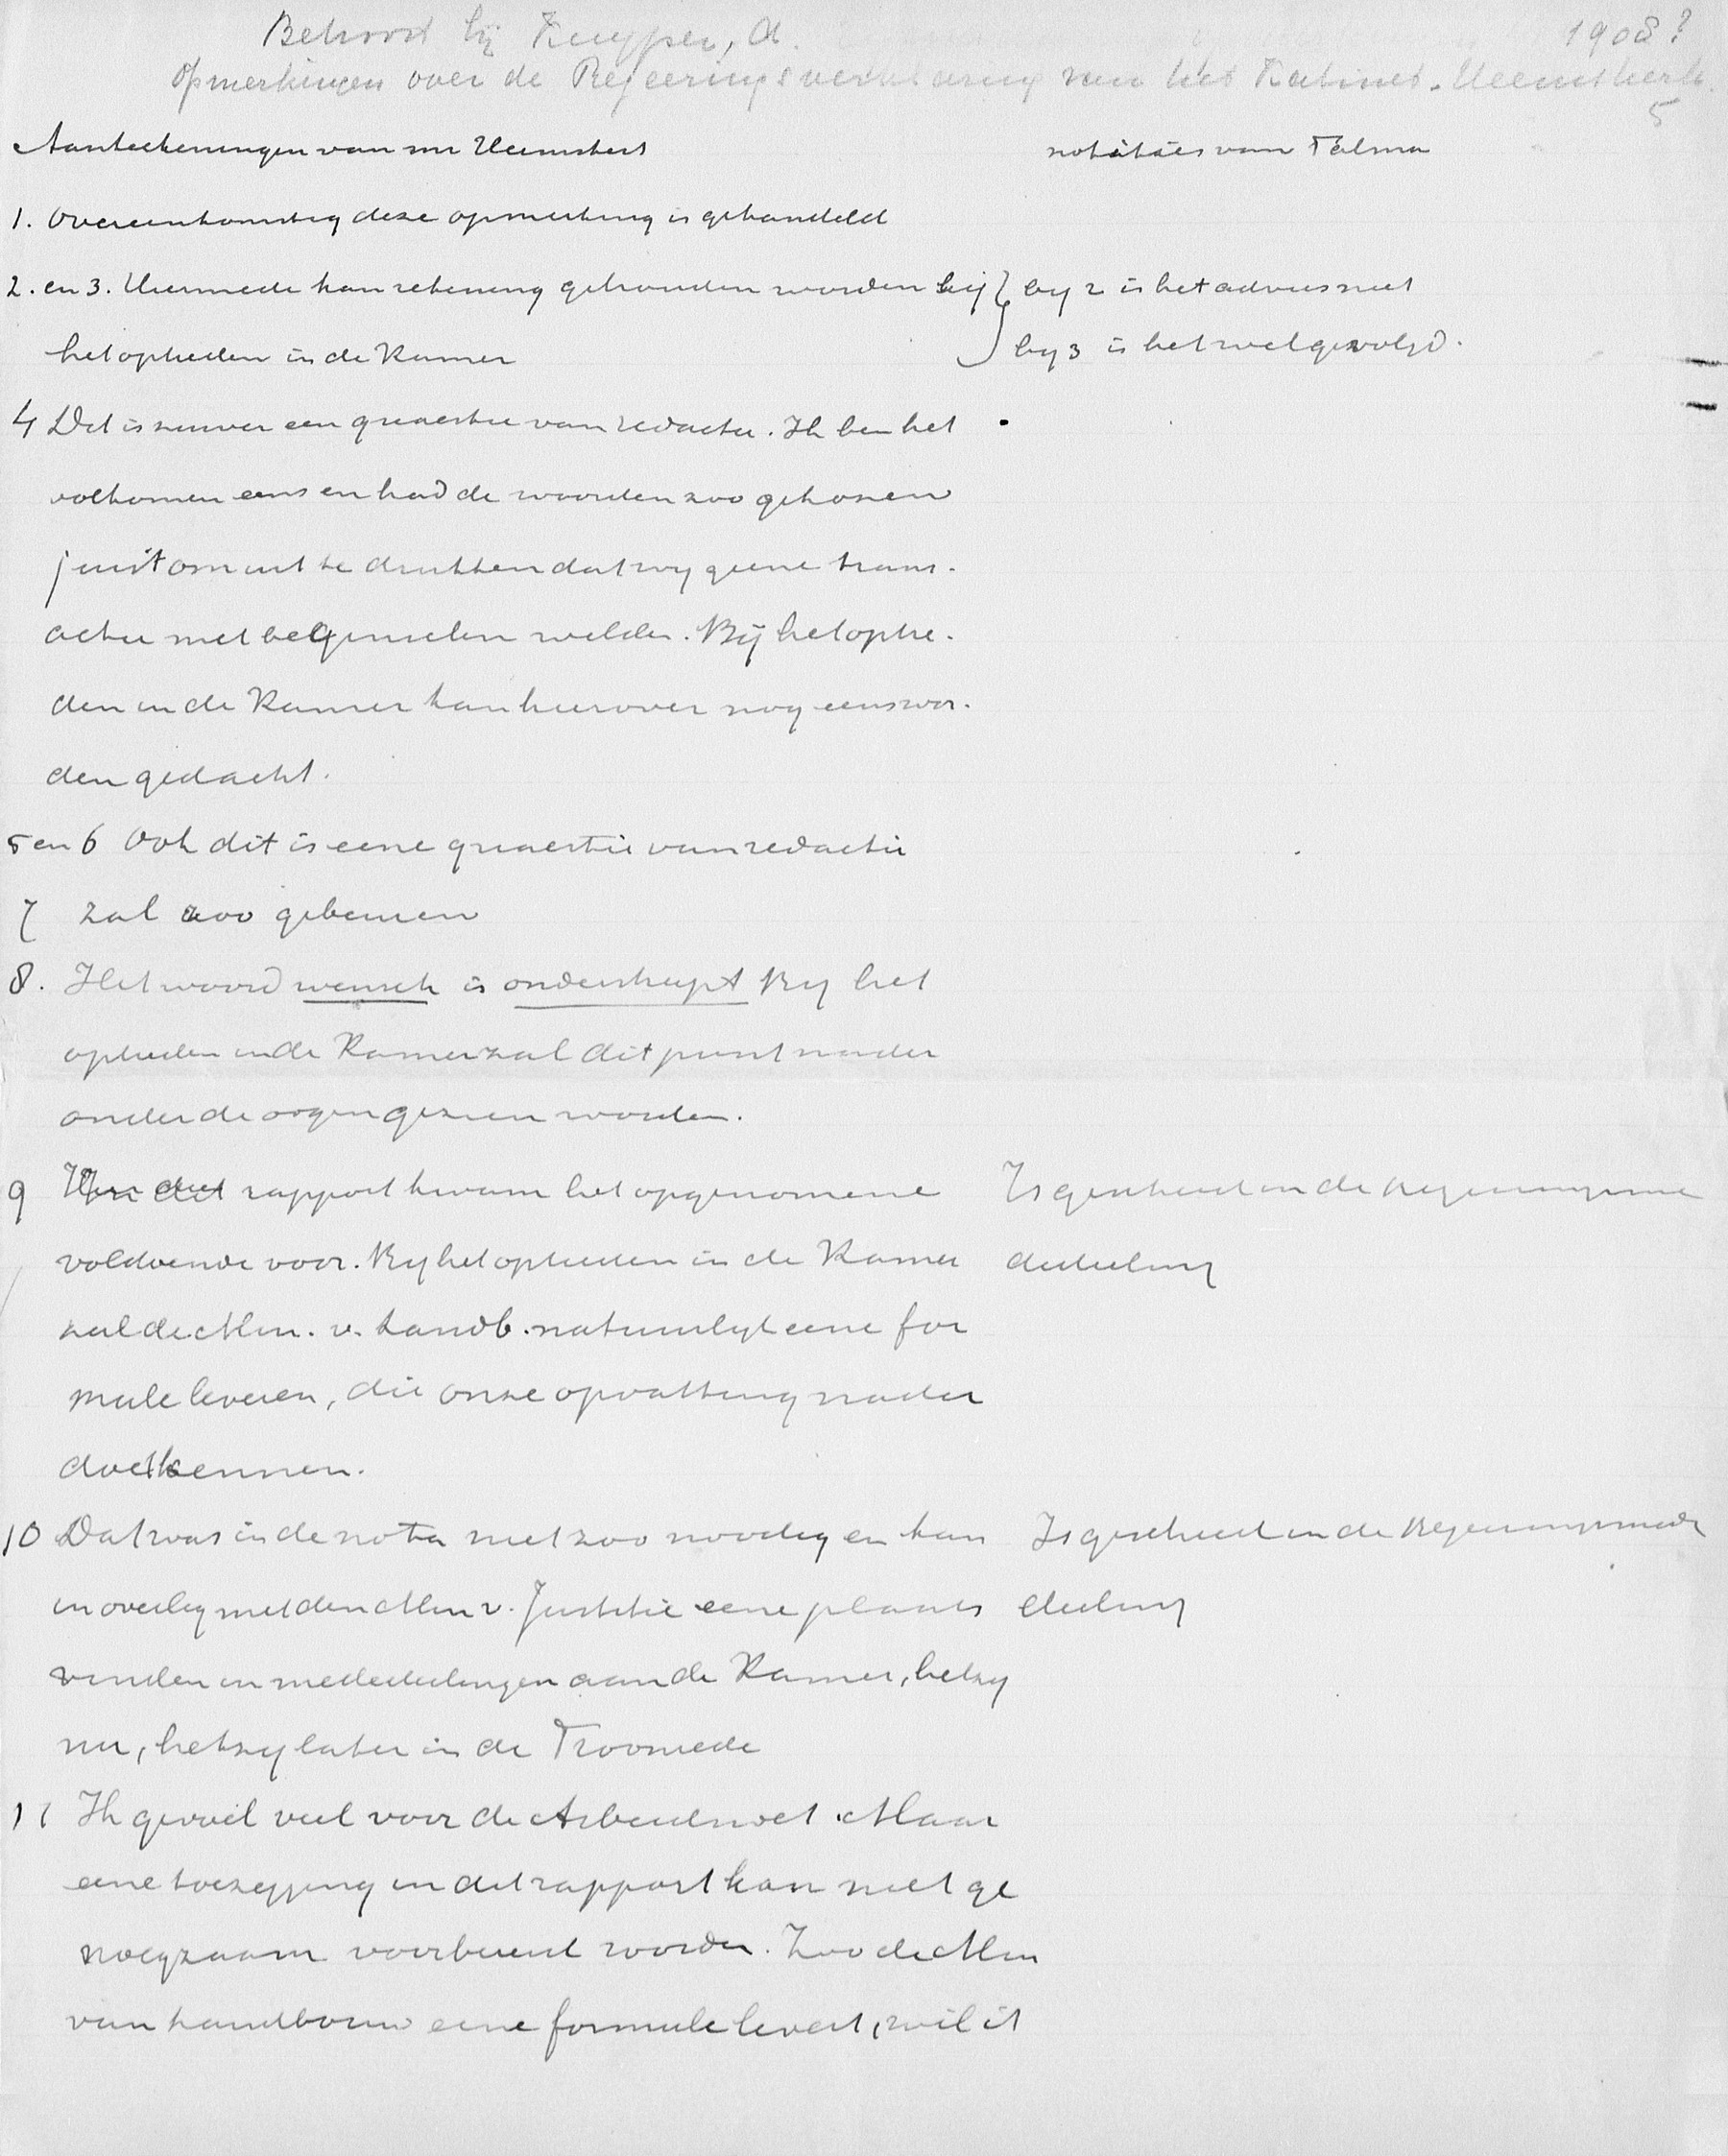 Behoort bij Kuyper, A. 1908?
Opmerkingen over de Regeeringsverklaring van het Kabinet-Heemskerk.
5
Aanteekeningen van mr Heemskerk
notities van Talma
1. Overeenkomstig deze opmerking is gehandeld
2. en 3. Hiermede kan rekening gehouden worden bij
het optreden in de Kamer
by 2 is het advies niet
by 3 is het wel gevolgd.
4 Dit is zuiver een quaestie van redactie. Ik ben het
volkomen eens en had de woorden zoo gekozen
juist om uit te drukken dat wy geene trans-
actie met beginselen wilden. Bij het optre-
den in de Kamer kan hierover nog eens wor-
den gedacht.
5 en 6 Ook dit is eene quaestie van redactie
7 zal zoo gebeuren
8. Het woord wensch is onderstreept By het
optreden in de Kamer zal dit punt nader
onder de oogen gezien worden.
9 rapport kwam het opgenomene
voldoende voor. By het optreden in de Kamer
zal de Min. v. Landb. natuurlyk eene for
mule leveren, die onze opvatting nader
doet kennen.
Is geschied in de Regeeringsme
dedeeling
10 Dat was in de nota niet zoo noodig en kan
in overleg met den Min v. Justitie eene plaats
vinden in mededeelingen aan de Kamer, hetzy
nu, hetzy later in de Troonrede
Is geschied in de Regeeringsmede
deeling
11 Ik gevoel veel voor de Arbeidswet. Maar
eene toezegging in dit rapport kan niet ge
noegzaam voorbereid worden. Zoo de Min
van Landbouw eene formule levert, wil ik